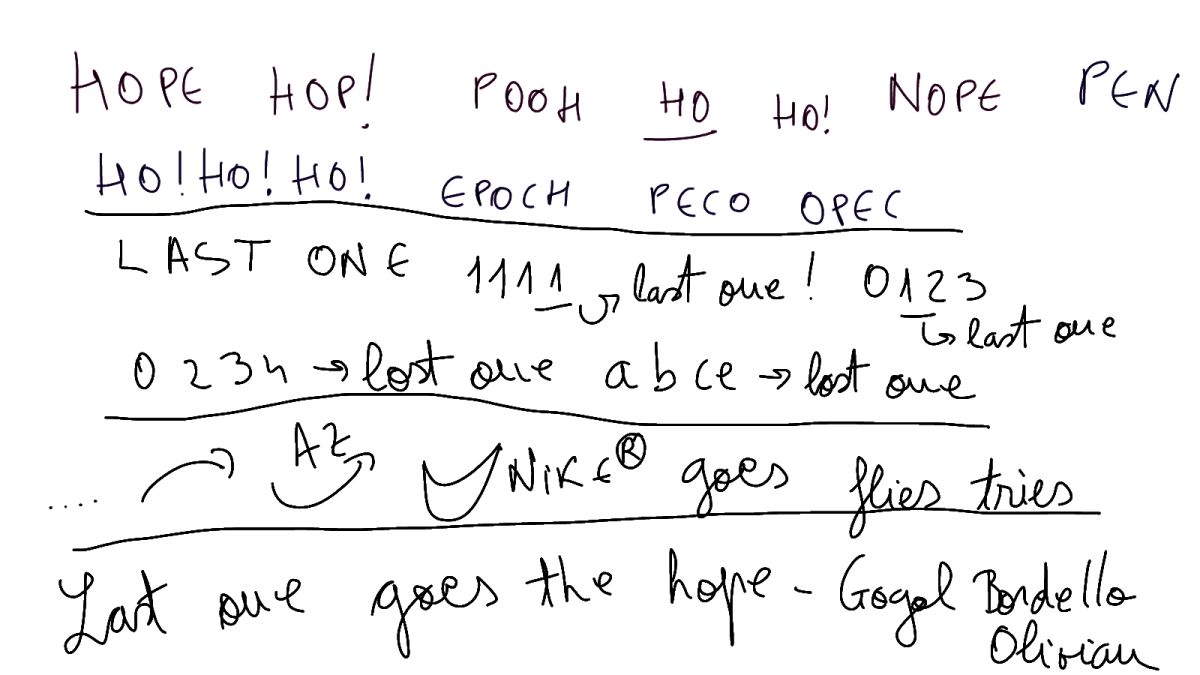 HOPE HOP! POOH HO HO! NOPE PEN
HO! HO! HO! EPOCH PECO OPEC
LAST ONE 1111 last one! 0123
last one
0 2 3 4 → lost one a b c e → lost one
.... AZ NIKE® goes flies tries
Last one goes the hope - Gogol Bordello
Olivian